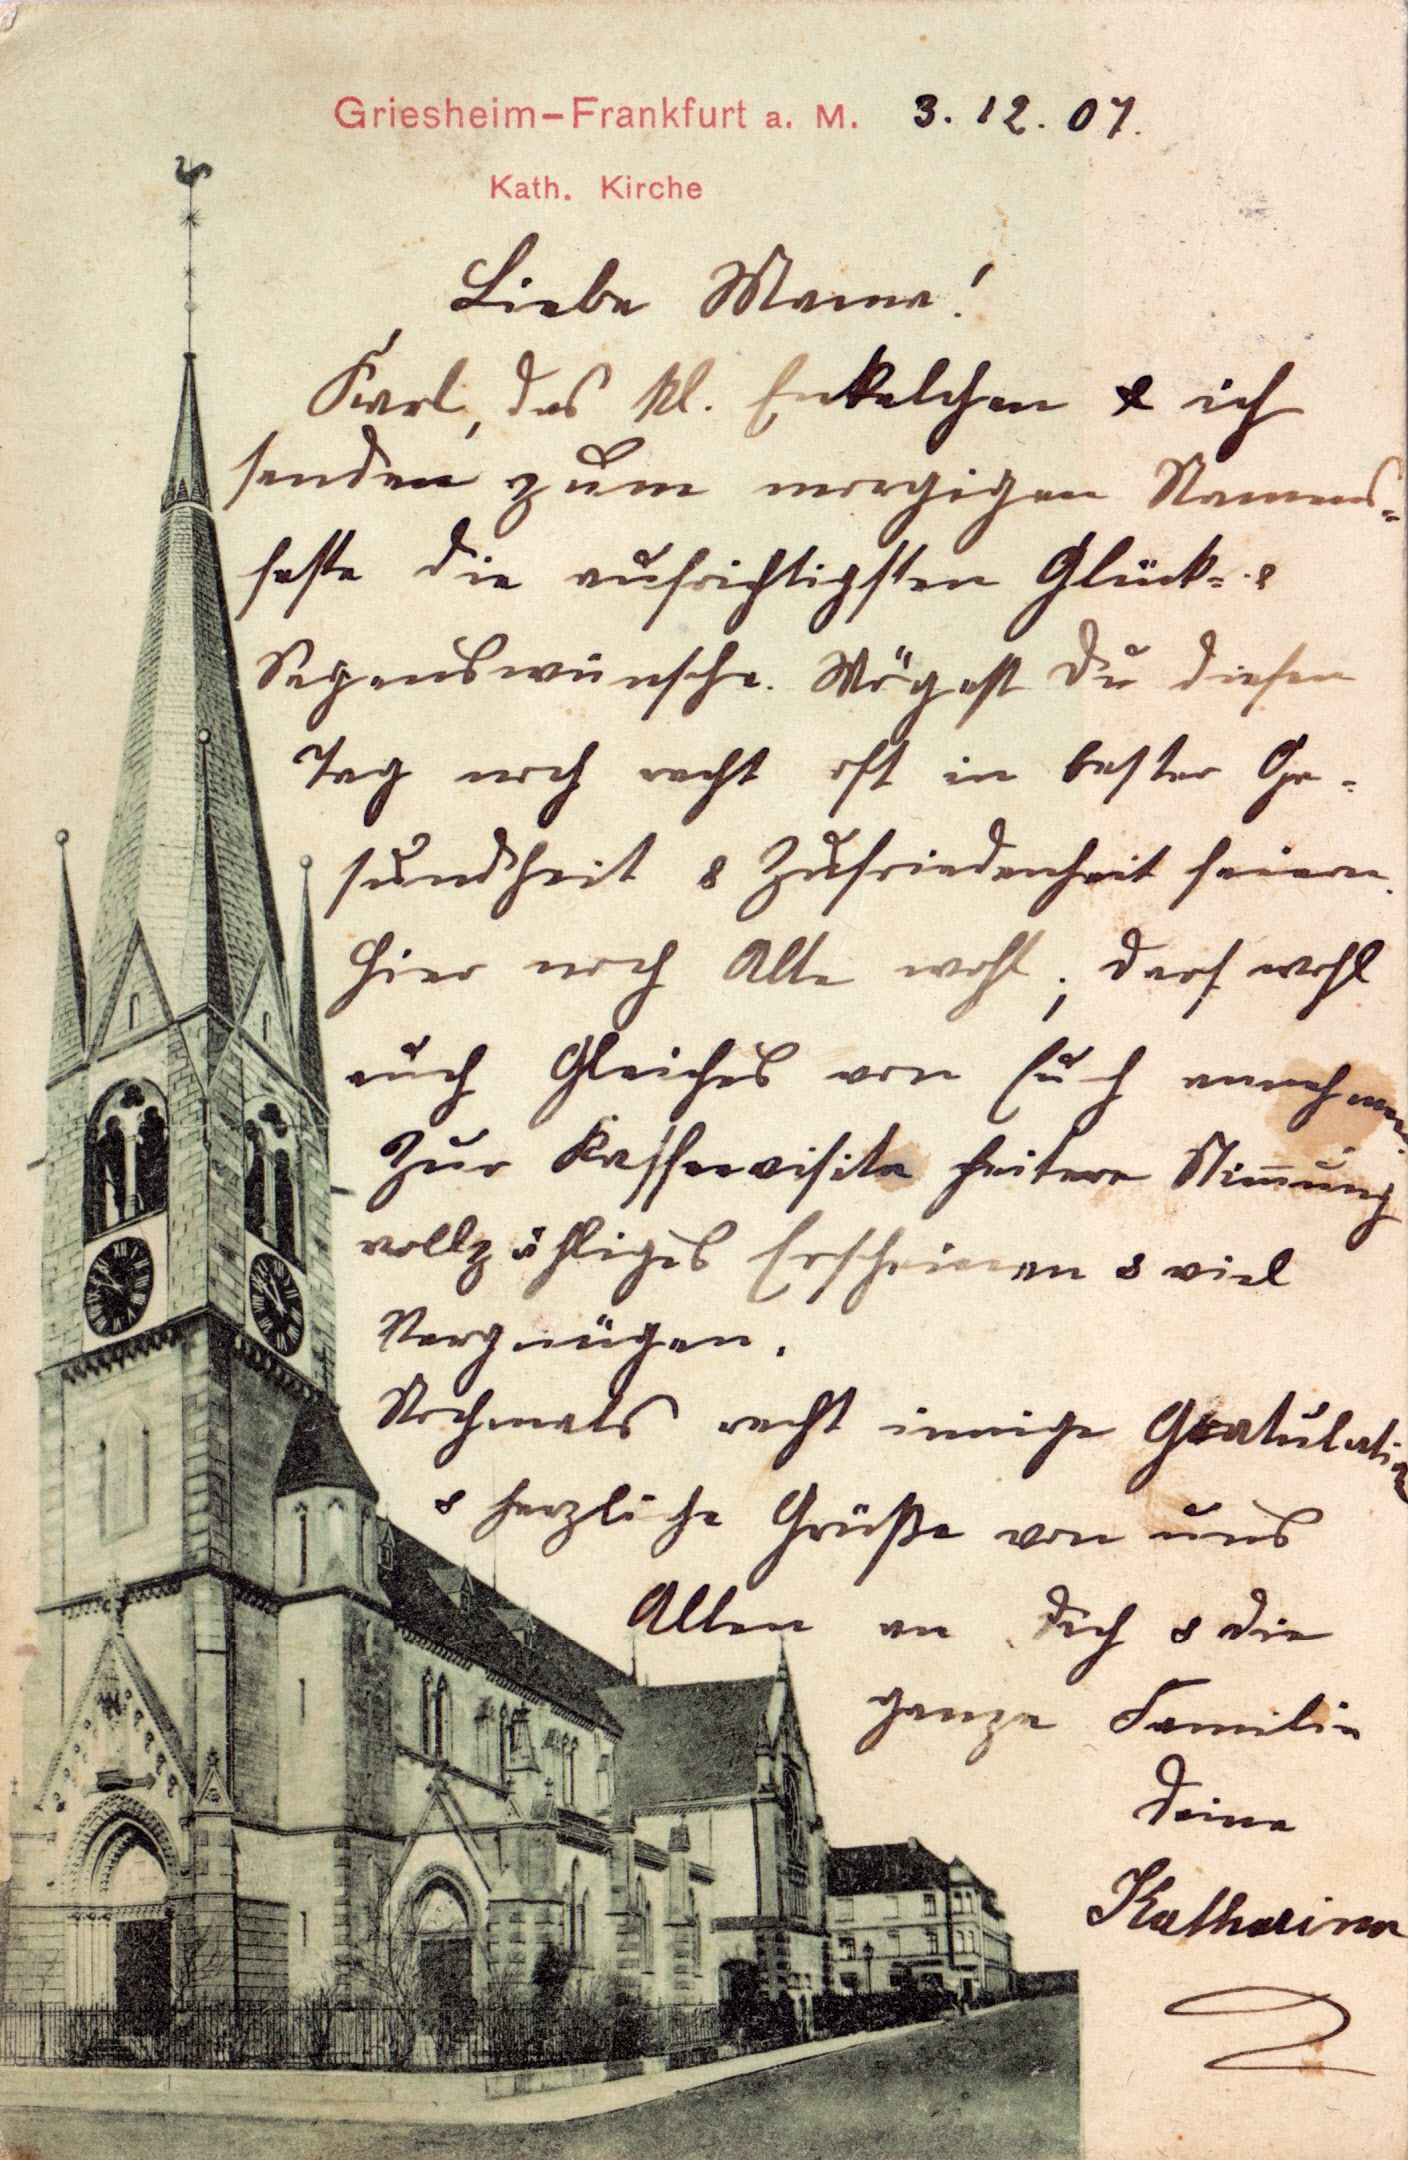 Griesheim-Frankfurt a. M. 3.12.07.
Kath. Kirche
Liebe Mama!
Karl, das kl. Enkelchen & ich
senden zum morgigen Namens-
feste die aufrichtigsten Glück- &
Segenswünsche. Mögest Du diesen
Tag noch recht oft in bester Ge-
sundheit & Zufriedenheit feiern.
Hier noch Alle wohl, darf wohl
auch Gleiches von Euch annehmen.
Zur Kaffeevisite heitere Stim̅ung
vollzähliges Erscheinen & viel
Vergnügen.
Nochmals recht innige Gratulation
& herzliche Grüße von uns
Allen an Dich & die
ganze Familie
Deine
Katharina